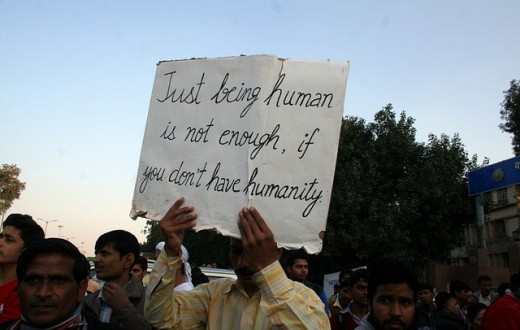 Just being human
is not enough, if
you don't have humanity